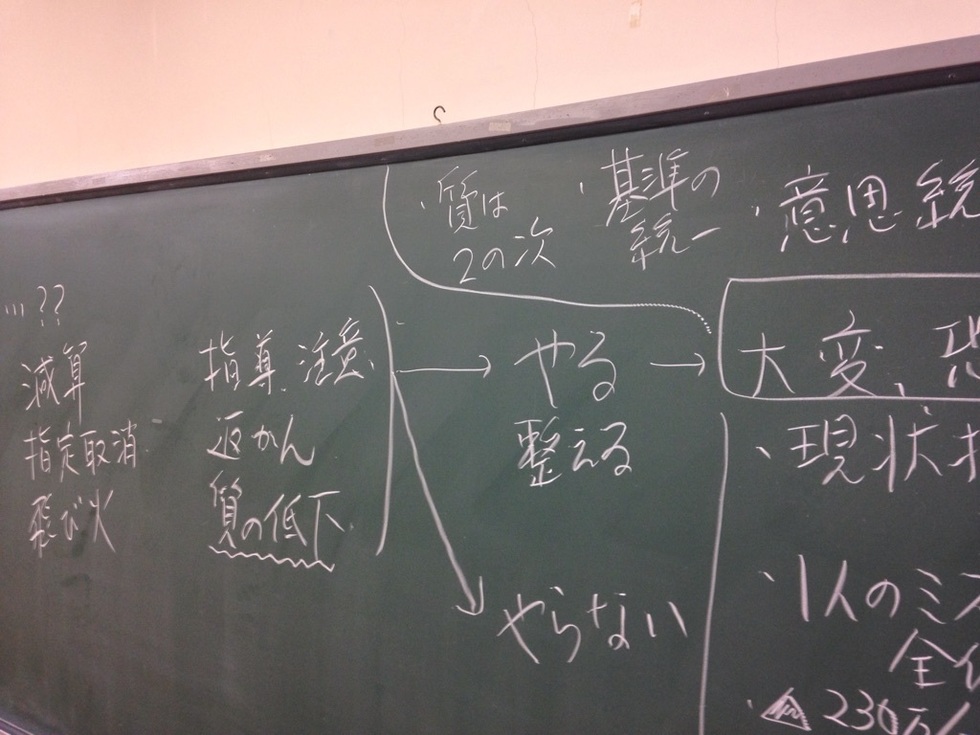 ・質は
2の次
・基準の
統一
・意思統
…??
減算
指定取消
飛び火
指導、注意
返かん
質の低下
やる
整える
やらない
大変、
・現状
・1人のミス
全
230万